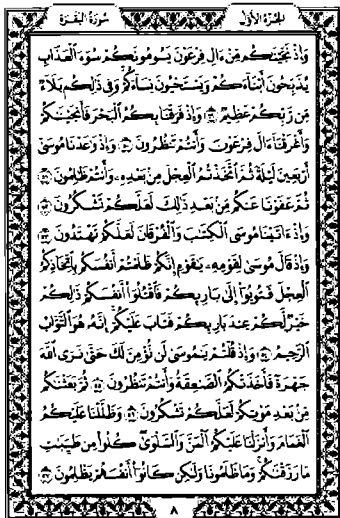 الجزء الأول سورة البقرة
وَإِذْ نَجَّيْنَٰكُم مِّنْ ءَالِ فِرْعَوْنَ يَسُومُونَكُمْ سُوٓءَ ٱلْعَذَابِ
يُذَبِّحُونَ أَبْنَآءَكُمْ وَيَسْتَحْيُونَ نِسَآءَكُمْ وَفِى ذَٰلِكُم بَلَآءٌ
مِّن رَّبِّكُمْ عَظِيمٌ ٤٩ وَإِذْ فَرَقْنَا بِكُمُ ٱلْبَحْرَ فَأَنجَيْنَٰكُمْ
وَأَغْرَقْنَآ ءَالَ فِرْعَوْنَ وَأَنتُمْ تَنظُرُونَ ٥٠ وَإِذْ وَٰعَدْنَا مُوسَىٰٓ
أَرْبَعِينَ لَيْلَةً ثُمَّ ٱتَّخَذْتُمُ ٱلْعِجْلَ مِنۢ بَعْدِهِۦ وَأَنتُمْ ظَٰلِمُونَ ٥١
ثُمَّ عَفَوْنَا عَنكُم مِّنۢ بَعْدِ ذَٰلِكَ لَعَلَّكُمْ تَشْكُرُونَ ٥٢
وَإِذْ ءَاتَيْنَا مُوسَى ٱلْكِتَٰبَ وَٱلْفُرْقَانَ لَعَلَّكُمْ تَهْتَدُونَ ٥٣
وَإِذْ قَالَ مُوسَىٰ لِقَوْمِهِۦ يَٰقَوْمِ إِنَّكُمْ ظَلَمْتُمْ أَنفُسَكُم بِٱتِّخَاذِكُمُ
ٱلْعِجْلَ فَتُوبُوٓا۟ إِلَىٰ بَارِئِكُمْ فَٱقْتُلُوٓا۟ أَنفُسَكُمْ ذَٰلِكُمْ
خَيْرٌ لَّكُمْ عِندَ بَارِئِكُمْ فَتَابَ عَلَيْكُمْ إِنَّهُۥ هُوَ ٱلتَّوَّابُ
ٱلرَّحِيمُ ٥٤ وَإِذْ قُلْتُمْ يَٰمُوسَىٰ لَن نُّؤْمِنَ لَكَ حَتَّىٰ نَرَى ٱللَّهَ
جَهْرَةً فَأَخَذَتْكُمُ ٱلصَّٰعِقَةُ وَأَنتُمْ تَنظُرُونَ ٥٥ ثُمَّ بَعَثْنَٰكُم
مِّنۢ بَعْدِ مَوْتِكُمْ لَعَلَّكُمْ تَشْكُرُونَ ٥٦ وَظَلَّلْنَا عَلَيْكُمُ
ٱلْغَمَامَ وَأَنزَلْنَا عَلَيْكُمُ ٱلْمَنَّ وَٱلسَّلْوَىٰ كُلُوا۟ مِن طَيِّبَٰتِ
مَا رَزَقْنَٰكُمْ وَمَا ظَلَمُونَا وَلَٰكِن كَانُوٓا۟ أَنفُسَهُمْ يَظْلِمُونَ ٥٧
٨